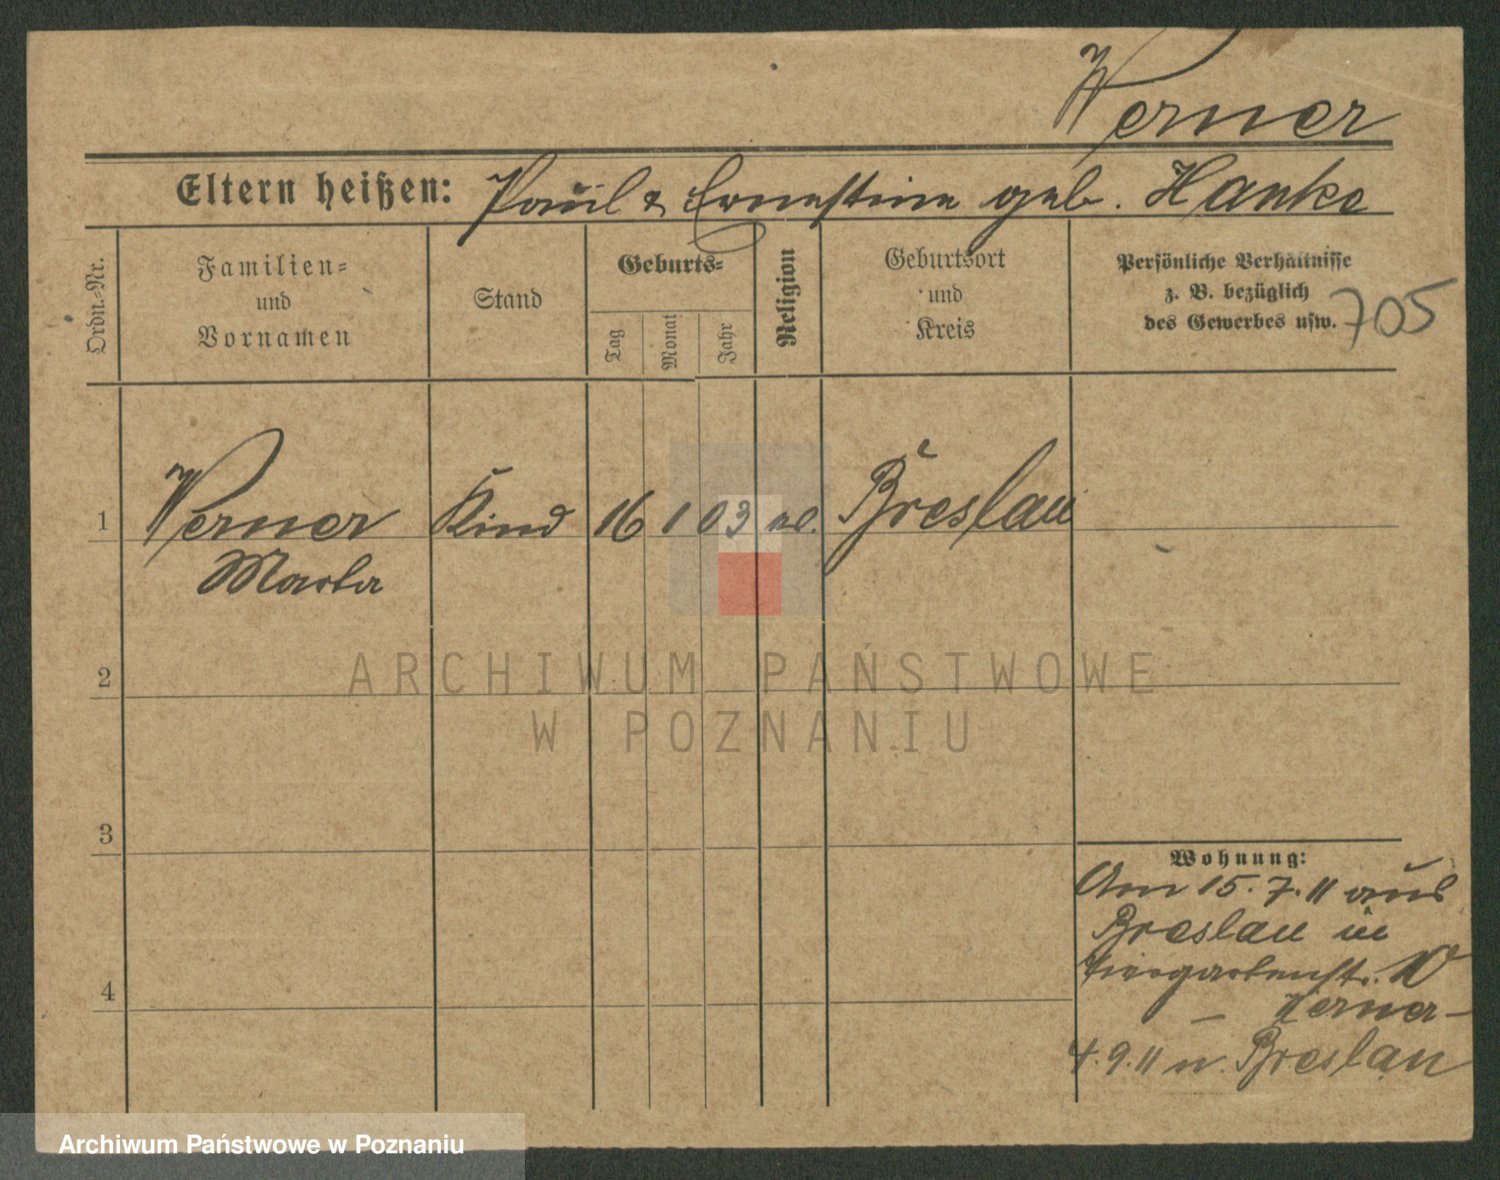 Werner
Eltern heißen: Paul & Ernestine geb. Hanke
Ordn.-Nr.
Familien-
und
Vornamen
Stand
Geburts-
Tag
Monat
Jahr
Religion
Geburtsort
und
Kreis
Persönliche Verhältnisse
z. B. bezüglich
des Gewerbes usw.
705
1 Werner Kind 16 1 03 ev. Breslau
Marta
2
3
4
Wohnung:
Am 15.7.11 aus
Breslau in
Tiergartenstr. 10
Werner
4.9.11 n. Breslau
ARCHIWUM PAŃSTWOWE
W POZNANIU
Archiwum Państwowe w Poznaniu